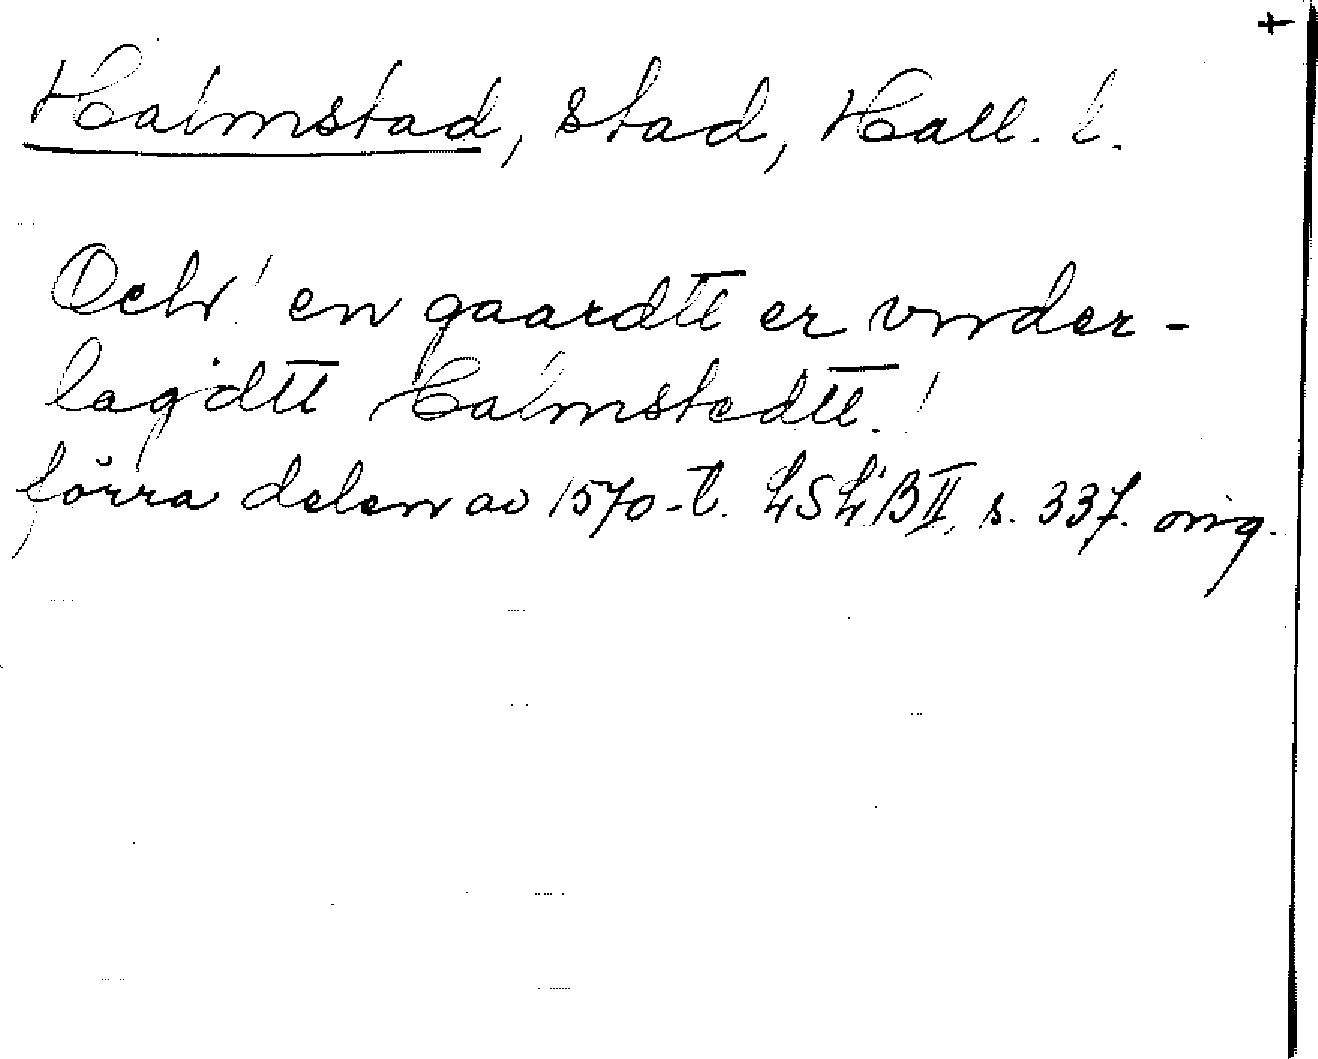 +
Halmstad, stad, Hall. l.
Och! en gaardtt er vnder-
lagdtt Halmstedtt!
förra delen av 1570-t. LSLB II, s. 337. orig.